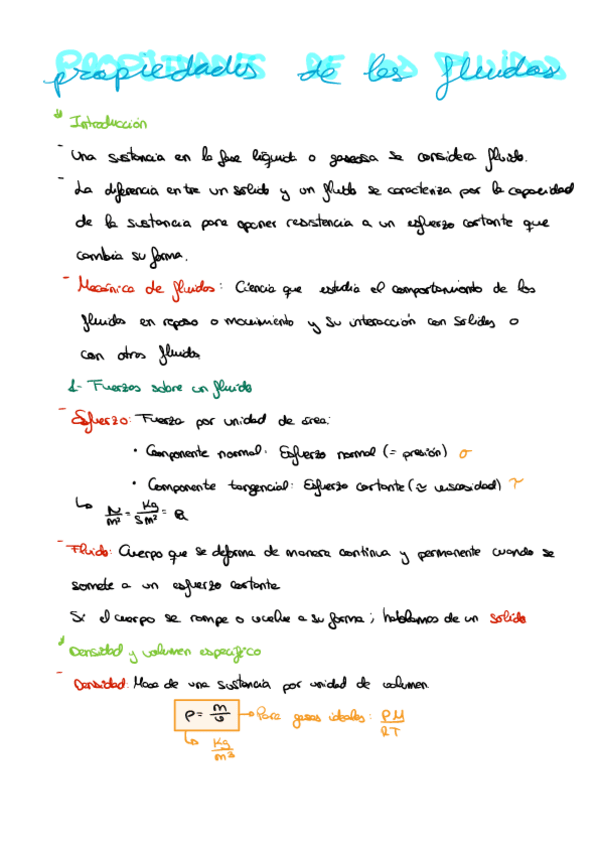 propiedades de los fluidos
* Introducción
- Una sustancia en la fase líquida o gaseosa se considera fluido.
- La diferencia entre un sólido y un fluido se caracteriza por la capacidad
de la sustancia para oponer resistencia a un esfuerzo cortante que
cambia su forma.
- Mecánica de fluidos: Ciencia que estudia el comportamiento de los
fluidos en reposo o movimiento y su interacción con solides o
con otros fluidos
1- Fuerzas sobre un fluido
- Esfuerzo: Fuerza por unidad de área:
· Componente normal: Esfuerzo normal (= presión) σ
· Componente tangencial: Esfuerzo cortante (≈ viscosidad) τ
↳ N/m² = Kg/S m² = Pa
- Fluido: Cuerpo que se deforma de manera continua y permanente cuando se
somete a un esfuerzo cortante
Si el cuerpo se rompe o vuelve a su forma; hablamos de un solido
* Densidad y volumen específico
- Densidad: Masa de una sustancia por unidad de volumen.
ρ = m/v → Para gases ideales: PM/RT
↳ Kg/m³